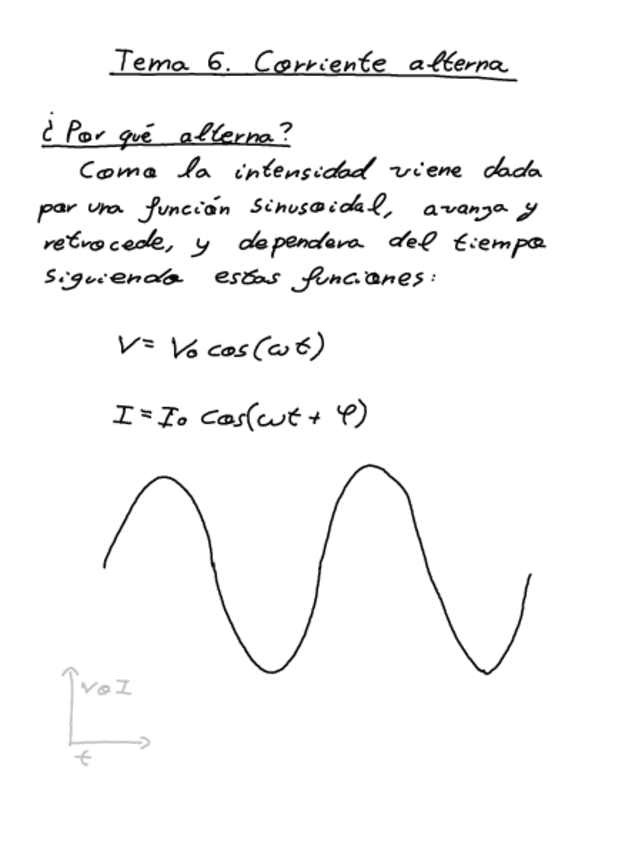 Tema 6. Corriente alterna
¿Por qué alterna?
Como la intensidad viene dada
por una función sinusoidal, avanza y
retrocede, y dependera del tiempo
siguiendo estas funciones:
V = V₀ cos(ωt)
I = I₀ cos(ωt + φ)
V o I
t